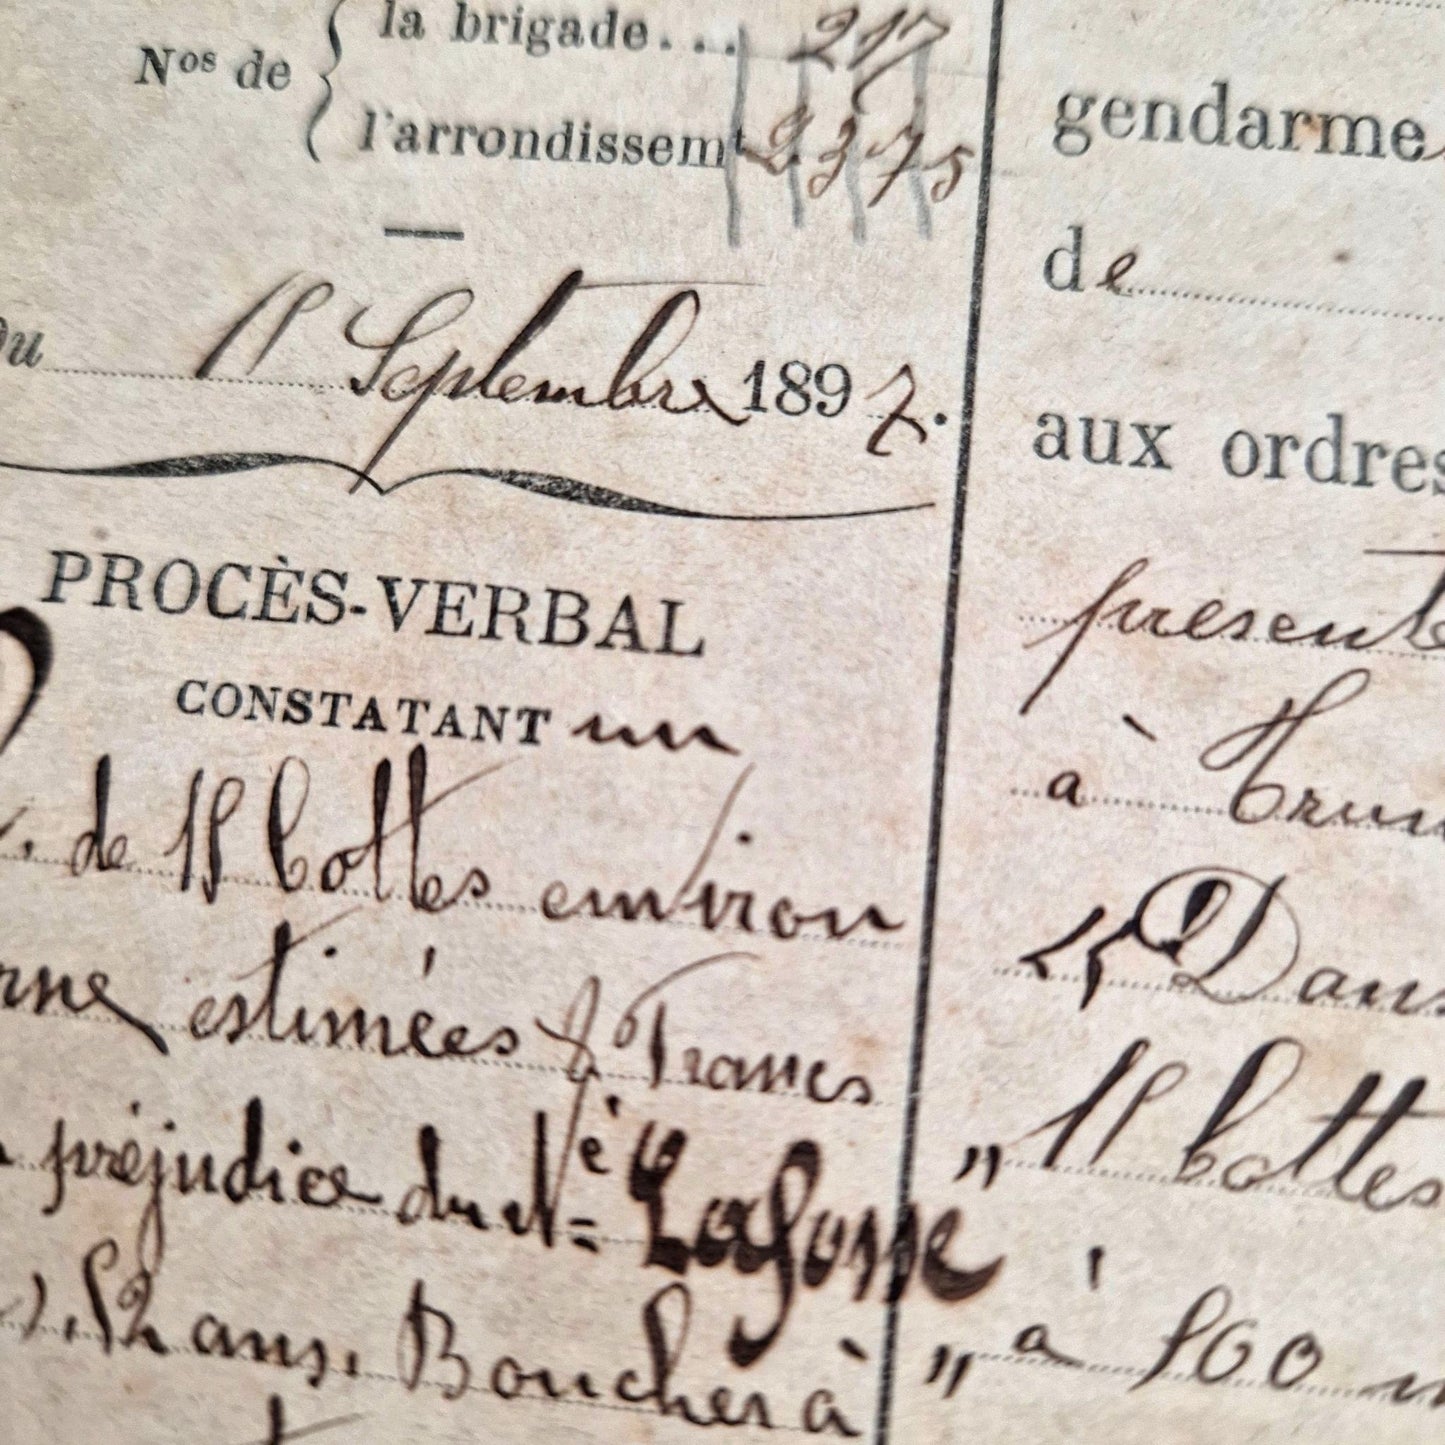 Nos de
la brigade... 217
l'arrondissemt 2375
Du Septembre 1897.
PROCÈS-VERBAL
CONSTATANT un
de bottes environ
estimées Francs
préjudice du Né Lafosse
52 ans. Boucher à
gendarme
de
aux ordres
présent
à
Dans
" bottes
" à 500